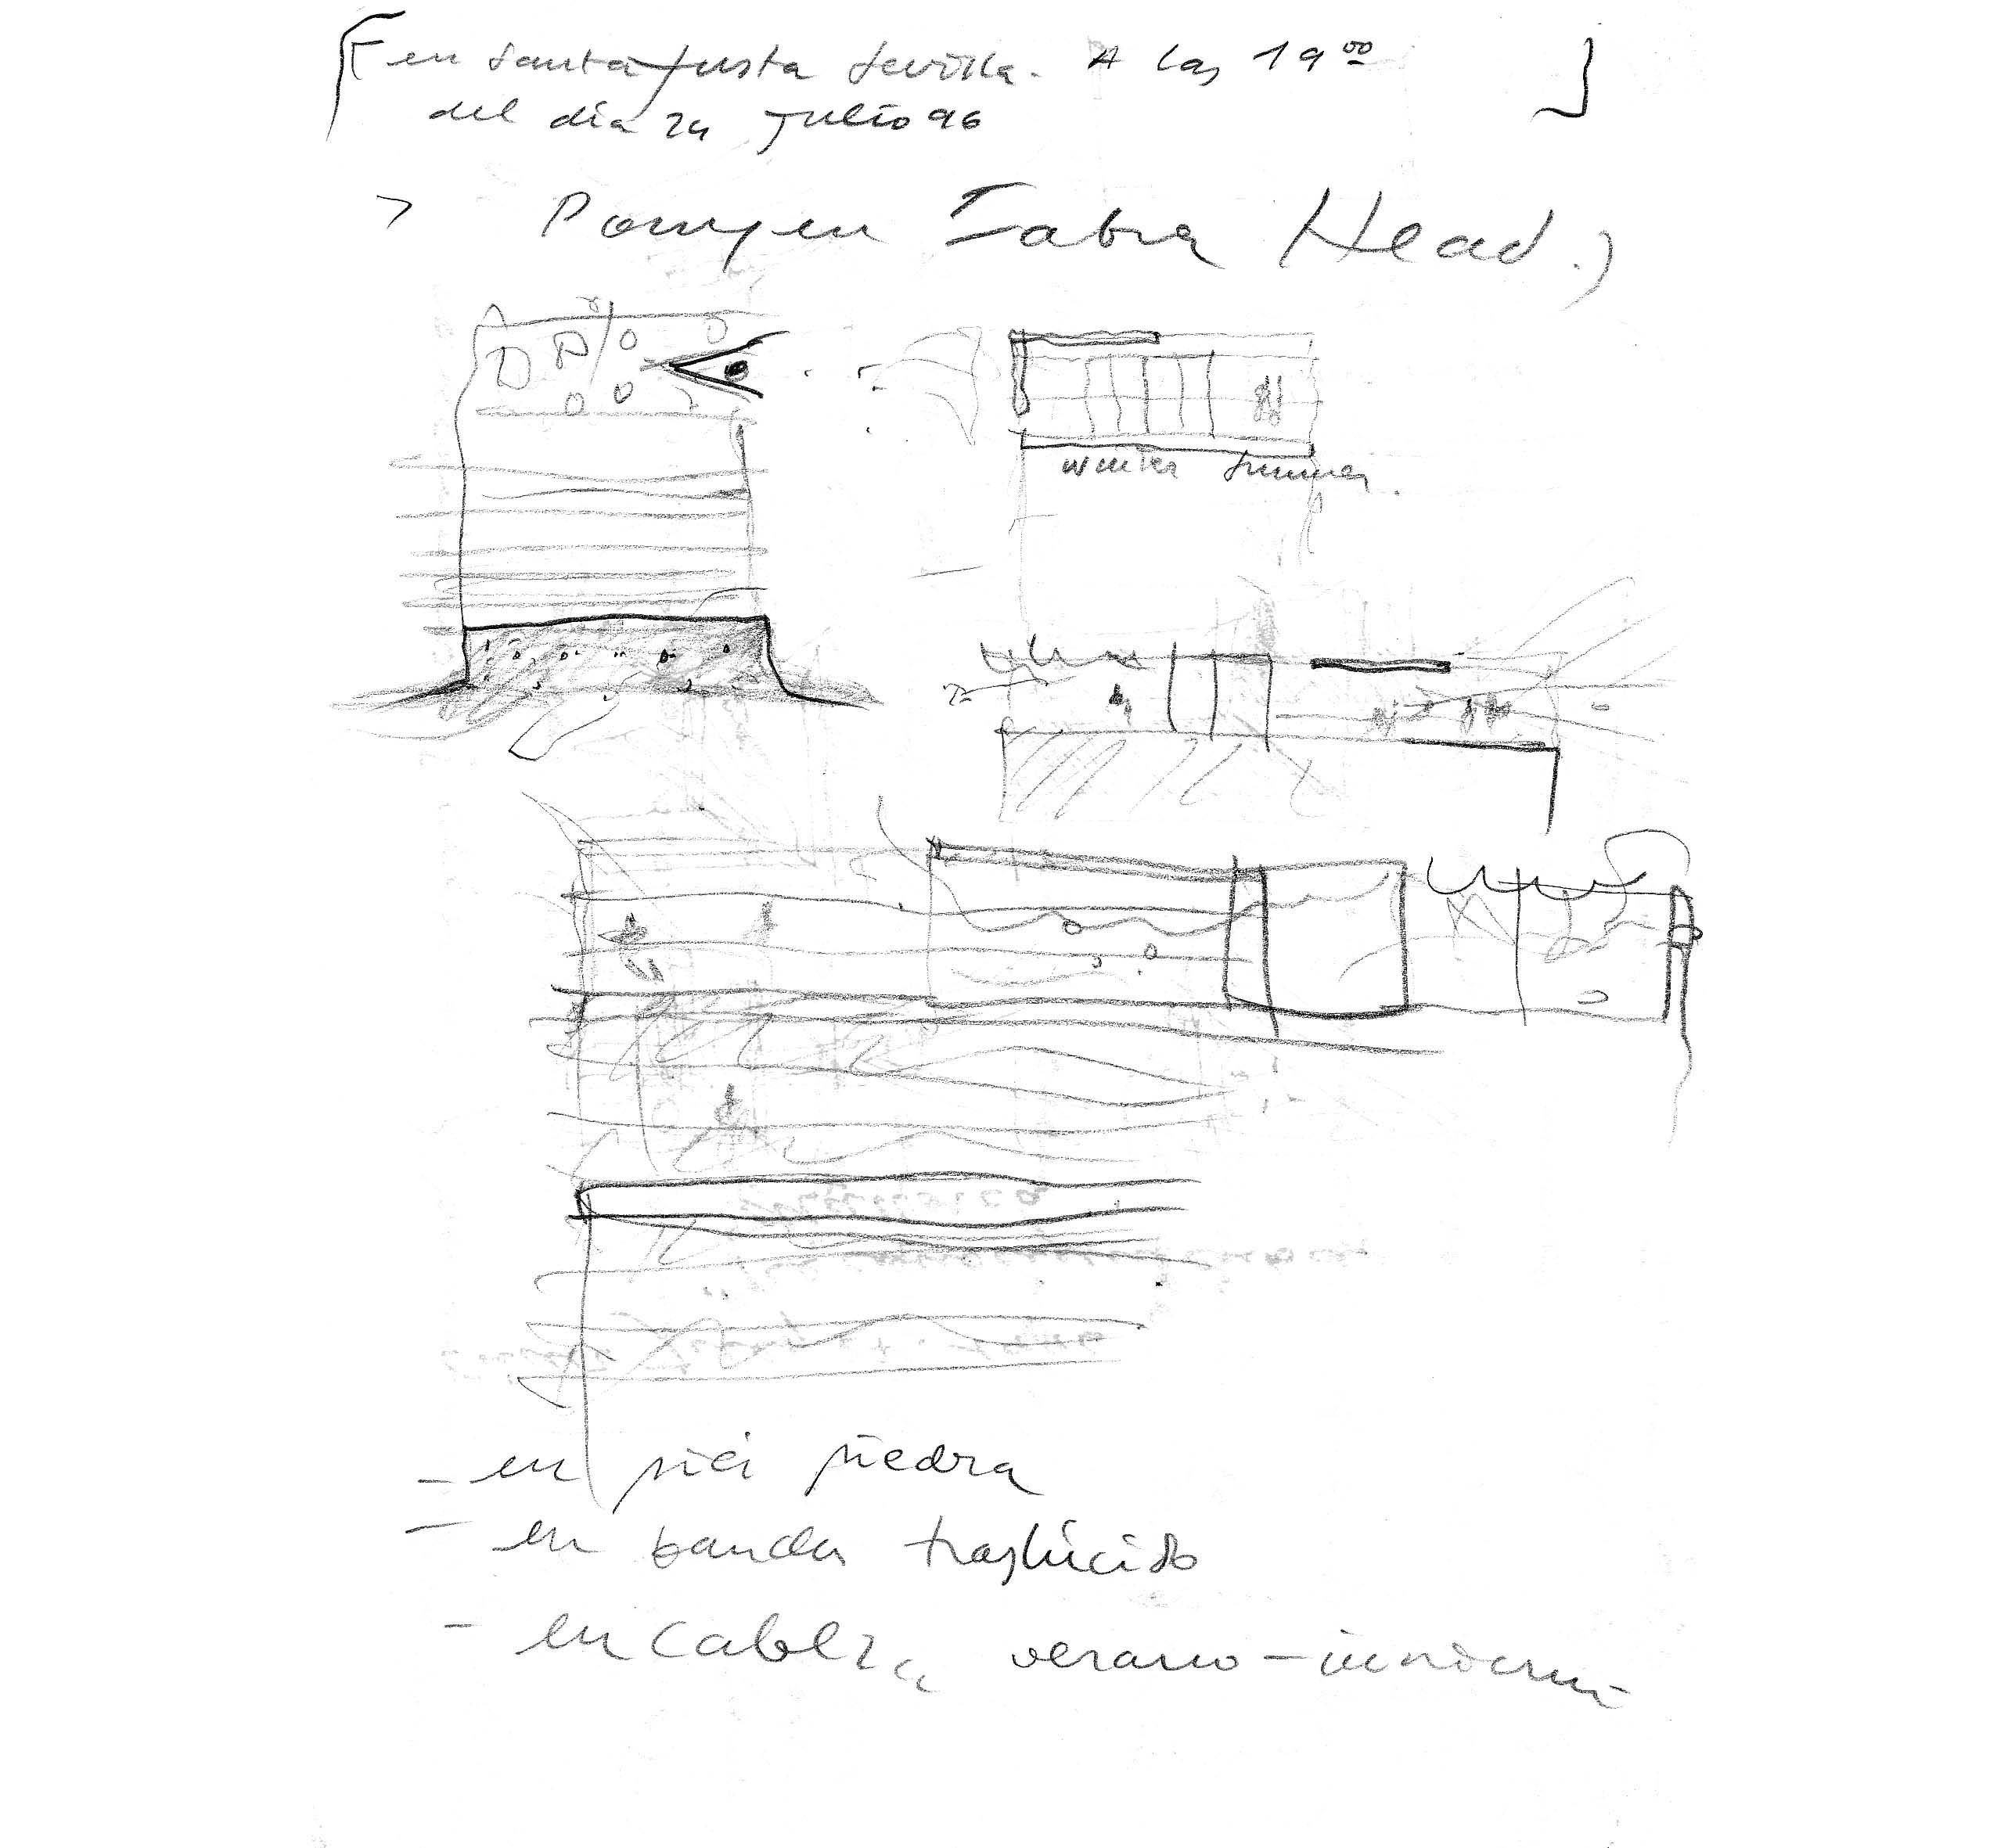 en Santa Justa Sevilla. A las 19⁰⁰
del dia 24 Julio 96
Head.
winter summer.
- en piel piedra
- en banda traslúcido
- en cabeza verano - invierno